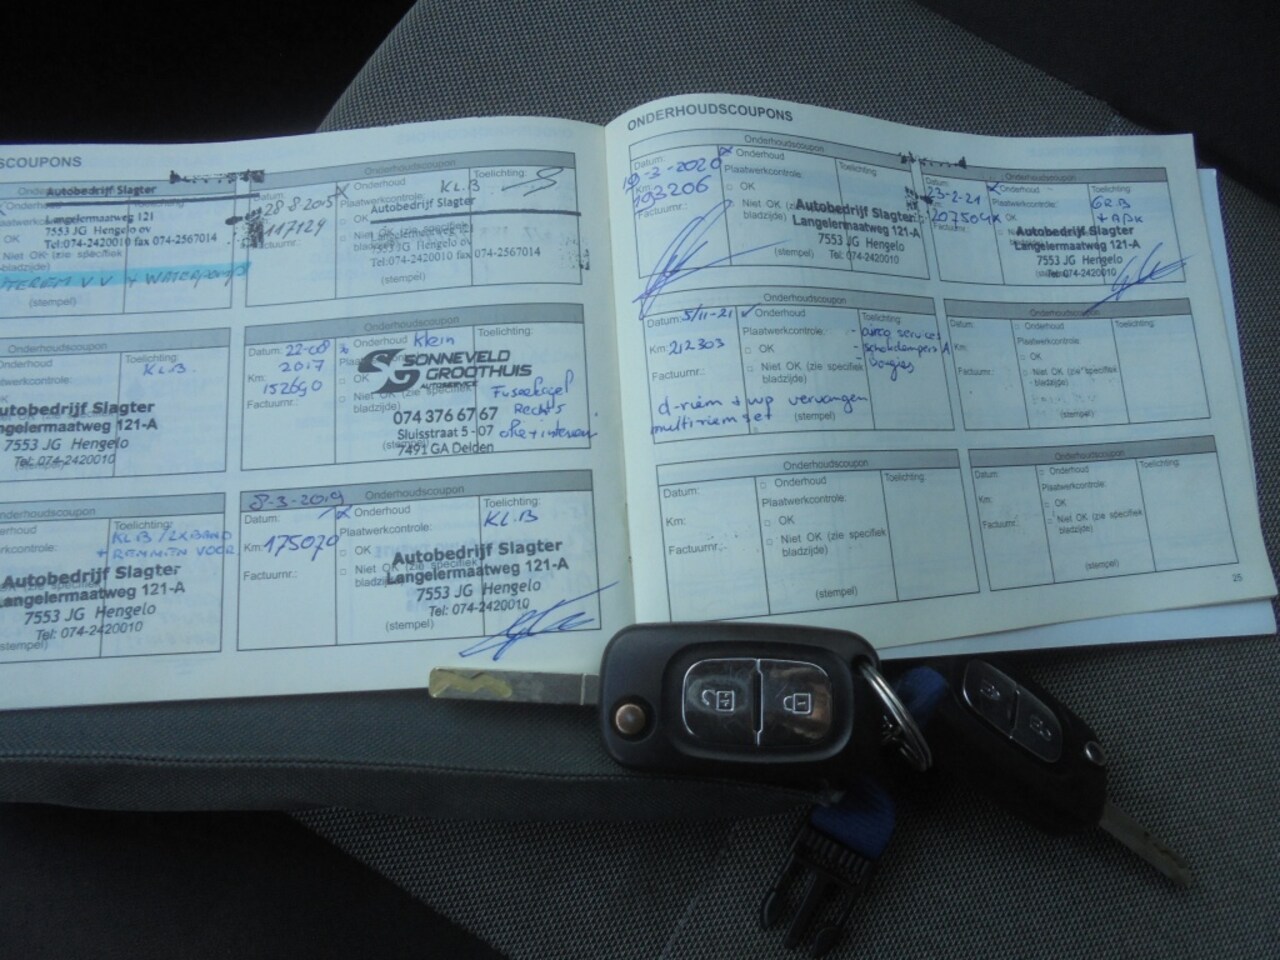 SCOUPONS
Autobedrijf Slagter
Langelermaatweg 121
7553 JG Hengelo ov
Tel:074-2420010 fax 074-2567014
OK
Niet OK (zie specifiek
bladzijde)
V V + WATERpomp
(stempel)
Onderhoudscoupon
Datum:
28-8-2015
117129
Factuurnr.:
Onderhoud
Plaatwerkcontrole:
OK
Toelichting:
KL.B
Autobedrijf Slagter
Hengelo ov
Tel:074-2420010 fax 074-2567014
(stempel)
Toelichting:
KL.B.
Autobedrijf Slagter
Langelermaatweg 121-A
7553 JG Hengelo
Tel: 074-2420010
Onderhoudscoupon
Datum: 22-08
2017
Km:
152690
Factuurnr.:
Onderhoud Klein
OK
Niet OK (zie specifiek
bladzijde)
Toelichting:
SONNEVELD
GROOTHUIS
AUTOSERVICE
074 376 67 67
Sluisstraat 5 - 07
7491 GA Delden
Fuseekogel
Rechts
Onderhoudscoupon
Toelichting:
KL.B / 2XBAND
+ REMMEN VOOR
Autobedrijf Slagter
Langelermaatweg 121-A
7553 JG Hengelo
Tel: 074-2420010
(stempel)
Onderhoudscoupon
8-3-2019
Datum:
Km: 175070
Factuurnr.:
Onderhoud
Plaatwerkcontrole:
OK
Niet OK (zie specifiek
bladzijde)
Toelichting:
KL.B
Autobedrijf Slagter
Langelermaatweg 121-A
7553 JG Hengelo
Tel: 074-2420010
(stempel)
ONDERHOUDSCOUPONS
Onderhoudscoupon
Datum:
19-3-2020
Km:
193206
Factuurnr.:
Onderhoud
Plaatwerkcontrole:
OK
Niet OK (zie specifiek
bladzijde)
Toelichting:
Autobedrijf Slagter
Langelermaatweg 121-A
7553 JG Hengelo
Tel: 074-2420010
(stempel)
Onderhoudscoupon
Datum:
23-2-21
207504
Factuurnr.:
Onderhoud
Plaatwerkcontrole:
OK
Toelichting:
GR.B
+ APK
Autobedrijf Slagter
Langelermaatweg 121-A
7553 JG Hengelo
Tel: 074-2420010
Onderhoudscoupon
Datum: 5/11-21
Km: 212303
Factuurnr.:
Onderhoud
Plaatwerkcontrole:
OK
Niet OK (zie specifiek
bladzijde)
Toelichting:
- airco service
- schokdempers A
- bougies
d-riem + wp vervangen
multiriem set
(stempel)
Onderhoudscoupon
Datum:
Km:
Factuurnr.:
Onderhoud
Plaatwerkcontrole:
OK
Niet OK (zie specifiek
bladzijde)
Toelichting:
(stempel)
Onderhoudscoupon
Datum:
Km:
Factuurnr.:
Onderhoud
Plaatwerkcontrole:
OK
Niet OK (zie specifiek
bladzijde)
Toelichting:
(stempel)
Onderhoudscoupon
Datum:
Km:
Factuurnr.:
Onderhoud
Plaatwerkcontrole:
OK
Niet OK (zie specifiek
bladzijde)
Toelichting:
(stempel)
25